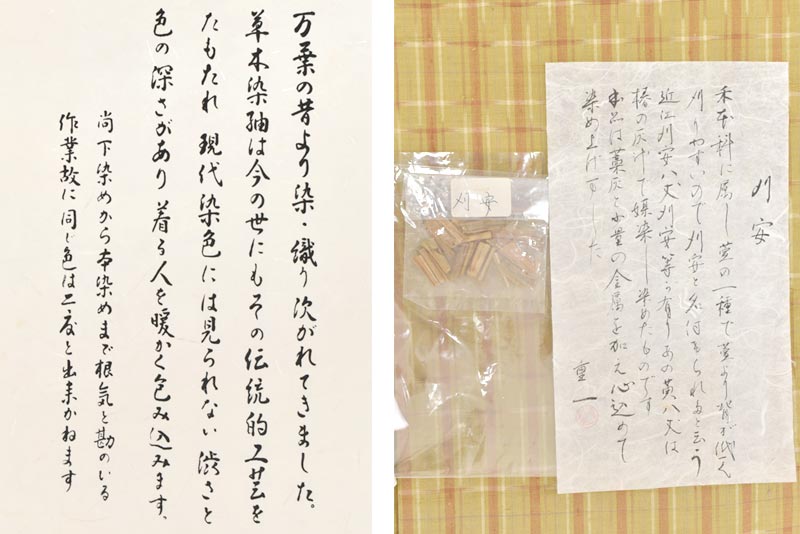 万葉の昔より染・織り次がれてきました。
草木染紬は今の世にもその伝統的工芸を
たもたれ 現代染色には見られない渋さと
色の深さがあり 着る人を暖かく包み込みます、
尚下染めから本染めまで根気と勘のいる
作業故に同じ色は二度と出来かねます
刈安
刈安
禾本科に属し萱の一種で萱より背が低く
刈りやすいので刈安と名付られると云う
近江刈安八丈刈安等が有りあの黄八丈は
椿の灰汁で媒染し染めたものです
本品は藁灰と少量の金属を加え心込めて
染め上げました
重一